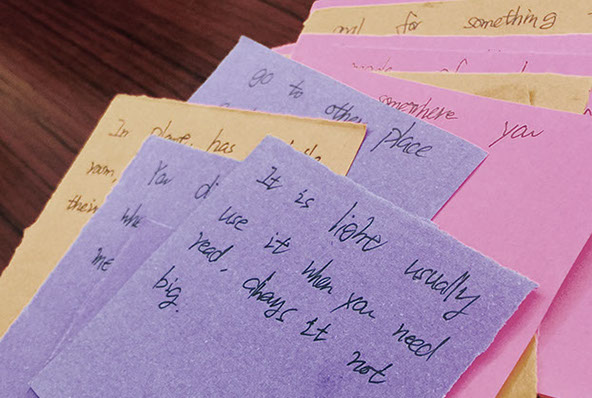 for something
somewhere you
go to other place
In place, has
room,
their
You di
whe
me
It is light usually
use it when you need
read, always it not
big.